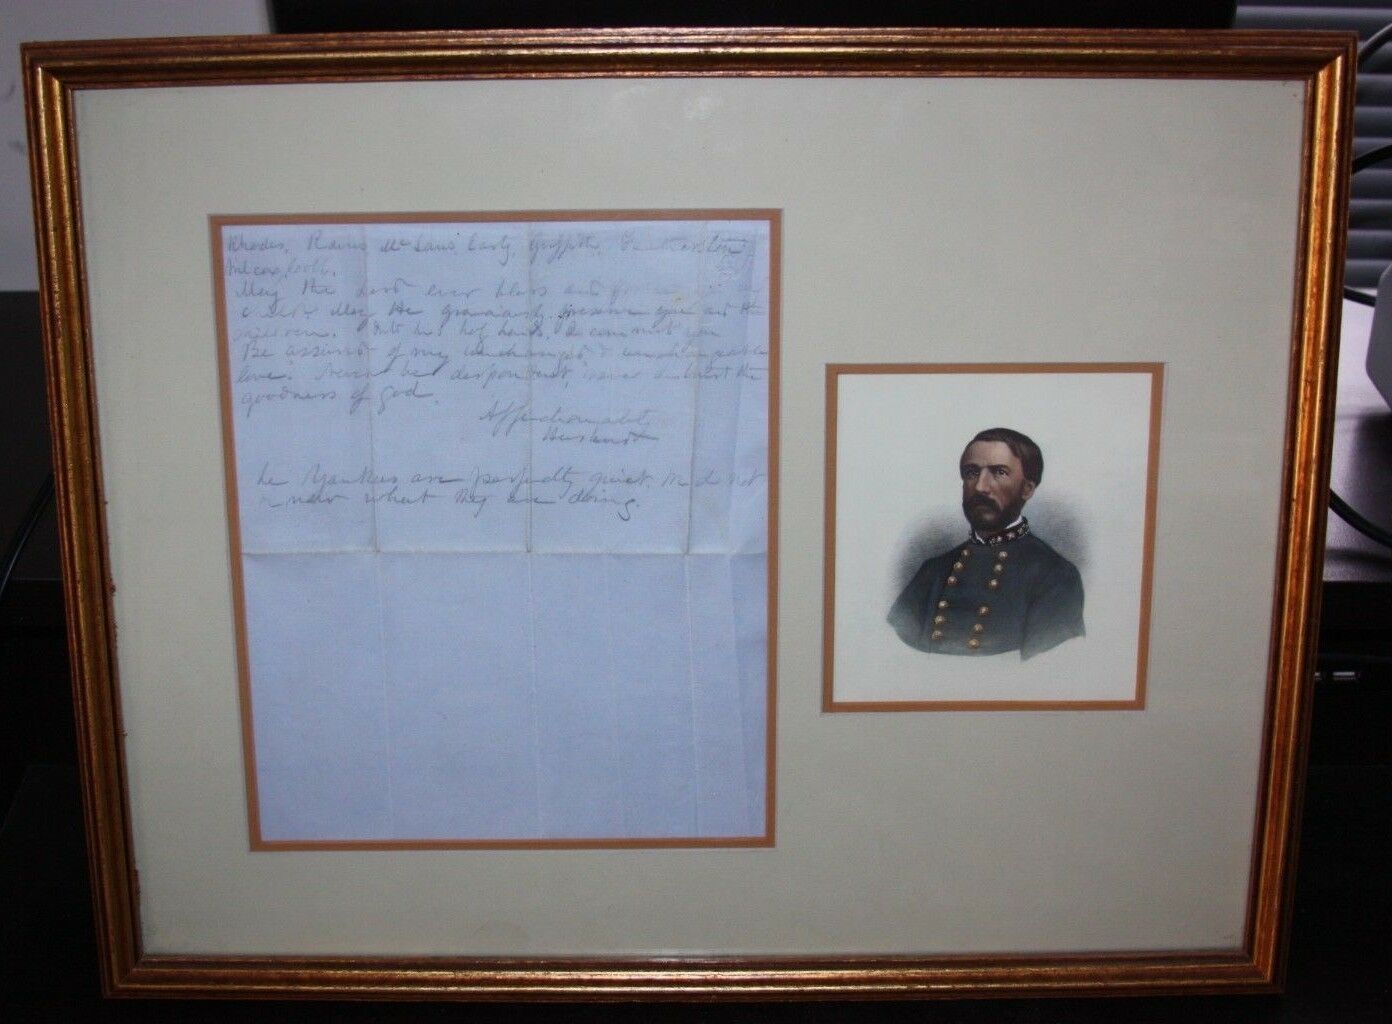 Rhodes, Rains McLaws, Early, Griffith,
Wilcox,
May the Lord ever bless and
May He graciously preserve you and the
Into his holy hands, I commit you
Be assured of my unchanged & unchangeable
love. Never be despondent, never distrust the
goodness of God.
Affectionately
Husband
The Yankees are perfectly quiet. We do not
know what they are doing.